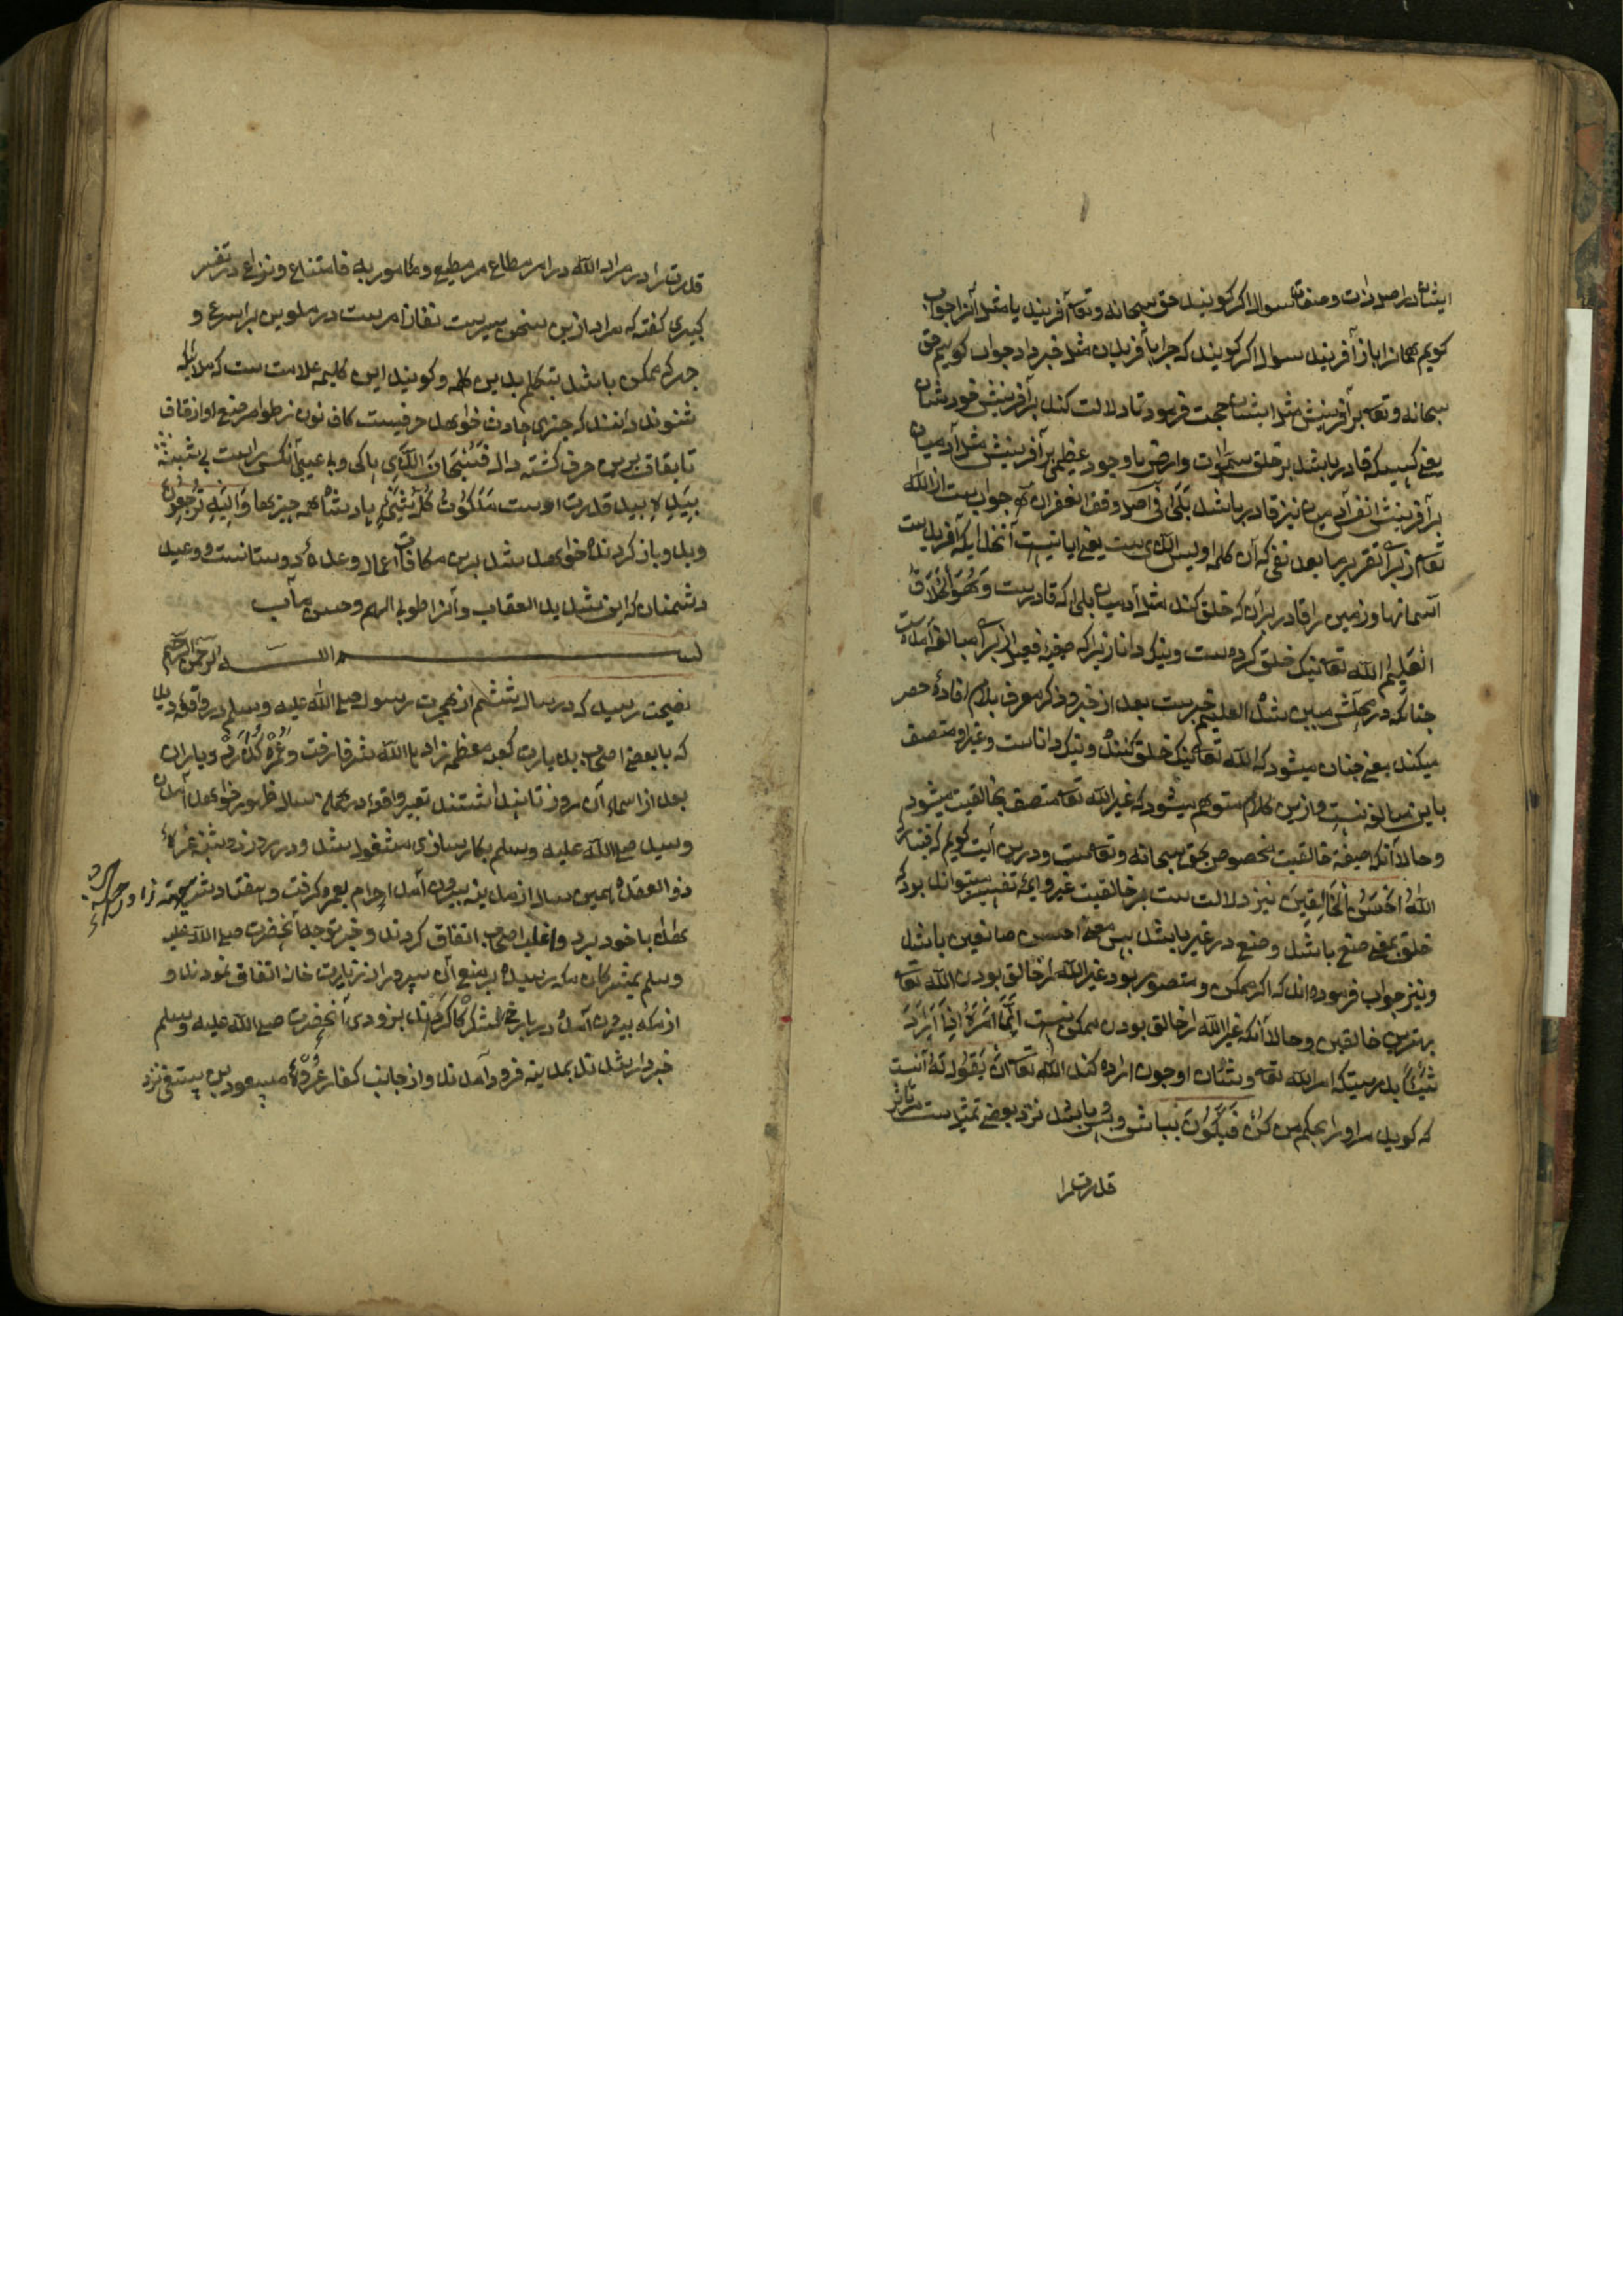 ایشان در اصل ذات و صفات سوال اگر گویند حق سبحانه و تعا آفریند یا مثل آنرا جواب
گویم همانرا باز آفریند سوال اگر گویند که چرا بآفریدن مثل خبر داد جواب گویم حق
سبحانه و تعا بر آفرینش مثل ایشان حجت فرمود تا دلالت کند بر آفرینش خود شان
یعنی کسیکه قادر باشد بر خلق سموات و ارض با وجود عظیمی بر آفرینش مثل آدمیان
بر آفرینش نیز قادر باشد بَلَی جواب ست از الله
تعا زیرا تقریر ما بعد نفی که آن کلمه اولیس الذی ست یعنی ایا نیست آنخدایکه آفریدست
آسمانها و زمین را قادر بر آن که خلق کند مثل آدمیان بلی که قادرست وَهُوَ الْخَلَّاقُ
الْعَلِیمُ الله تعا نیک خلق کرده ست و نیک دانا زیرا که صیغه فعیل از برای مبالغه آمده ست
چنانکه در محلش مبین شده العلیم خبرست بعد از خبر و ذکر معرف بلام افاده حصر
میکند یعنی چنان میشود که الله تعا نیک خلق کننده و نیک داناست و غیر او متصف
باین مبالغه نیست و ازین کلام متوهم میشود که غیر الله تعا متصف بخالقیت میشود
و حال آنکه صیفة خالقیت مخصوص بحق سبحانه و تعاست و درین آیت گویم که فتبارک
اللهُ اَحْسَنُ الْخَالِقِینَ نیز دلالت ست بر خالقیت غیر و ایمه تفسیر میتواند بود که
خلق بمعنی صنع باشد و صنع در غیر باشد پس معنی احسن صانعین باشد
و نیز جواب فرموده اند که اگر ممکن و متصور بود غیر الله از خالق بودن الله تعا
بهترین خالقین و حال آنکه غیر الله از خالق بودن ممکن نیست اِنَّمَا اَمْرُهُ اِذَا اَرَادَ
شَیْئًا بدرستیکه امر الله تعا و شان او چون اراده کند الله تعا اَنْ یَقُولَ لَهُ آنست
که گوید مر او را بحکم من کُنْ فَیَکُونُ بباش و پس باشد نزد بعضی تمثیل ست تاثیر
قدرت را
قدرت را در مراد الله در امر مطاع مر مطیع و مامور به فامتناع و نزاع در تفسیر
کبیری گفته که مراد ازین سخن سیرست نفاذ امرست در ملوین بر اسرع و
جهر که ممکن باشد بتکلم بدین کلمه و گویند این کلیمه علامت ست که ملائیکه
شنوند دانند که چیزی حادث خواهد حرفیست کاف نون ز طوامر صنع او از قاف
تا بقاف برین حرف گشته دال فَسُبْحَانَ الَّذِی پاکی و بی عیبی آنکس راست
بِیَدِهِ بید قدرت اوست مَلَکُوتُ کُلِّ شَیْءٍ پادشاه همه چیزها وَاِلَیْهِ تُرْجَعُونَ
و بدو باز گردنده خواهد شد برین مکافات اعمال وعده دوستانست و وعید
دشمنان که این شدید العقاب و آنرا طوبی لهم و حسن مآب
بسم الله الرحمن الرحیم
بصحت رسید که در سال ششم از هجرت رسول صلی الله علیه و سلم در واقعه دید
که با بعضی اصحاب بدیارت کعبه معظمه زاد ها الله شرفا رفت و عُمره گُذارد و یاران
بعد از اسماء آن روز تا پنداشتند تعبیر واقعه در همان سال ظهور خواهد آمدن
و سید صلی الله علیه و سلم بکار سازی مشغول شد و در روز دو شنبه غره
ذو القعده همین سال از مدینه بیرون آمد احرام بعمره گرفت و هفتاد شتر
با خود برد و اغلب اصحاب اتفاق کردند و خبر توجه آنحضرت صلی الله علیه
و سلم بمشرکان مکه رسید بر منع آن سرور از زیارت خانه اتفاق نمودند و
از مکه بیرون آمده در لشکرگاه کردند بزودی آنحضرت صلی الله علیه و سلم
خبردار شدند بمدینه فرود آمدند و از جانب کفار عُرْوه مسعود بن سقفی نزد